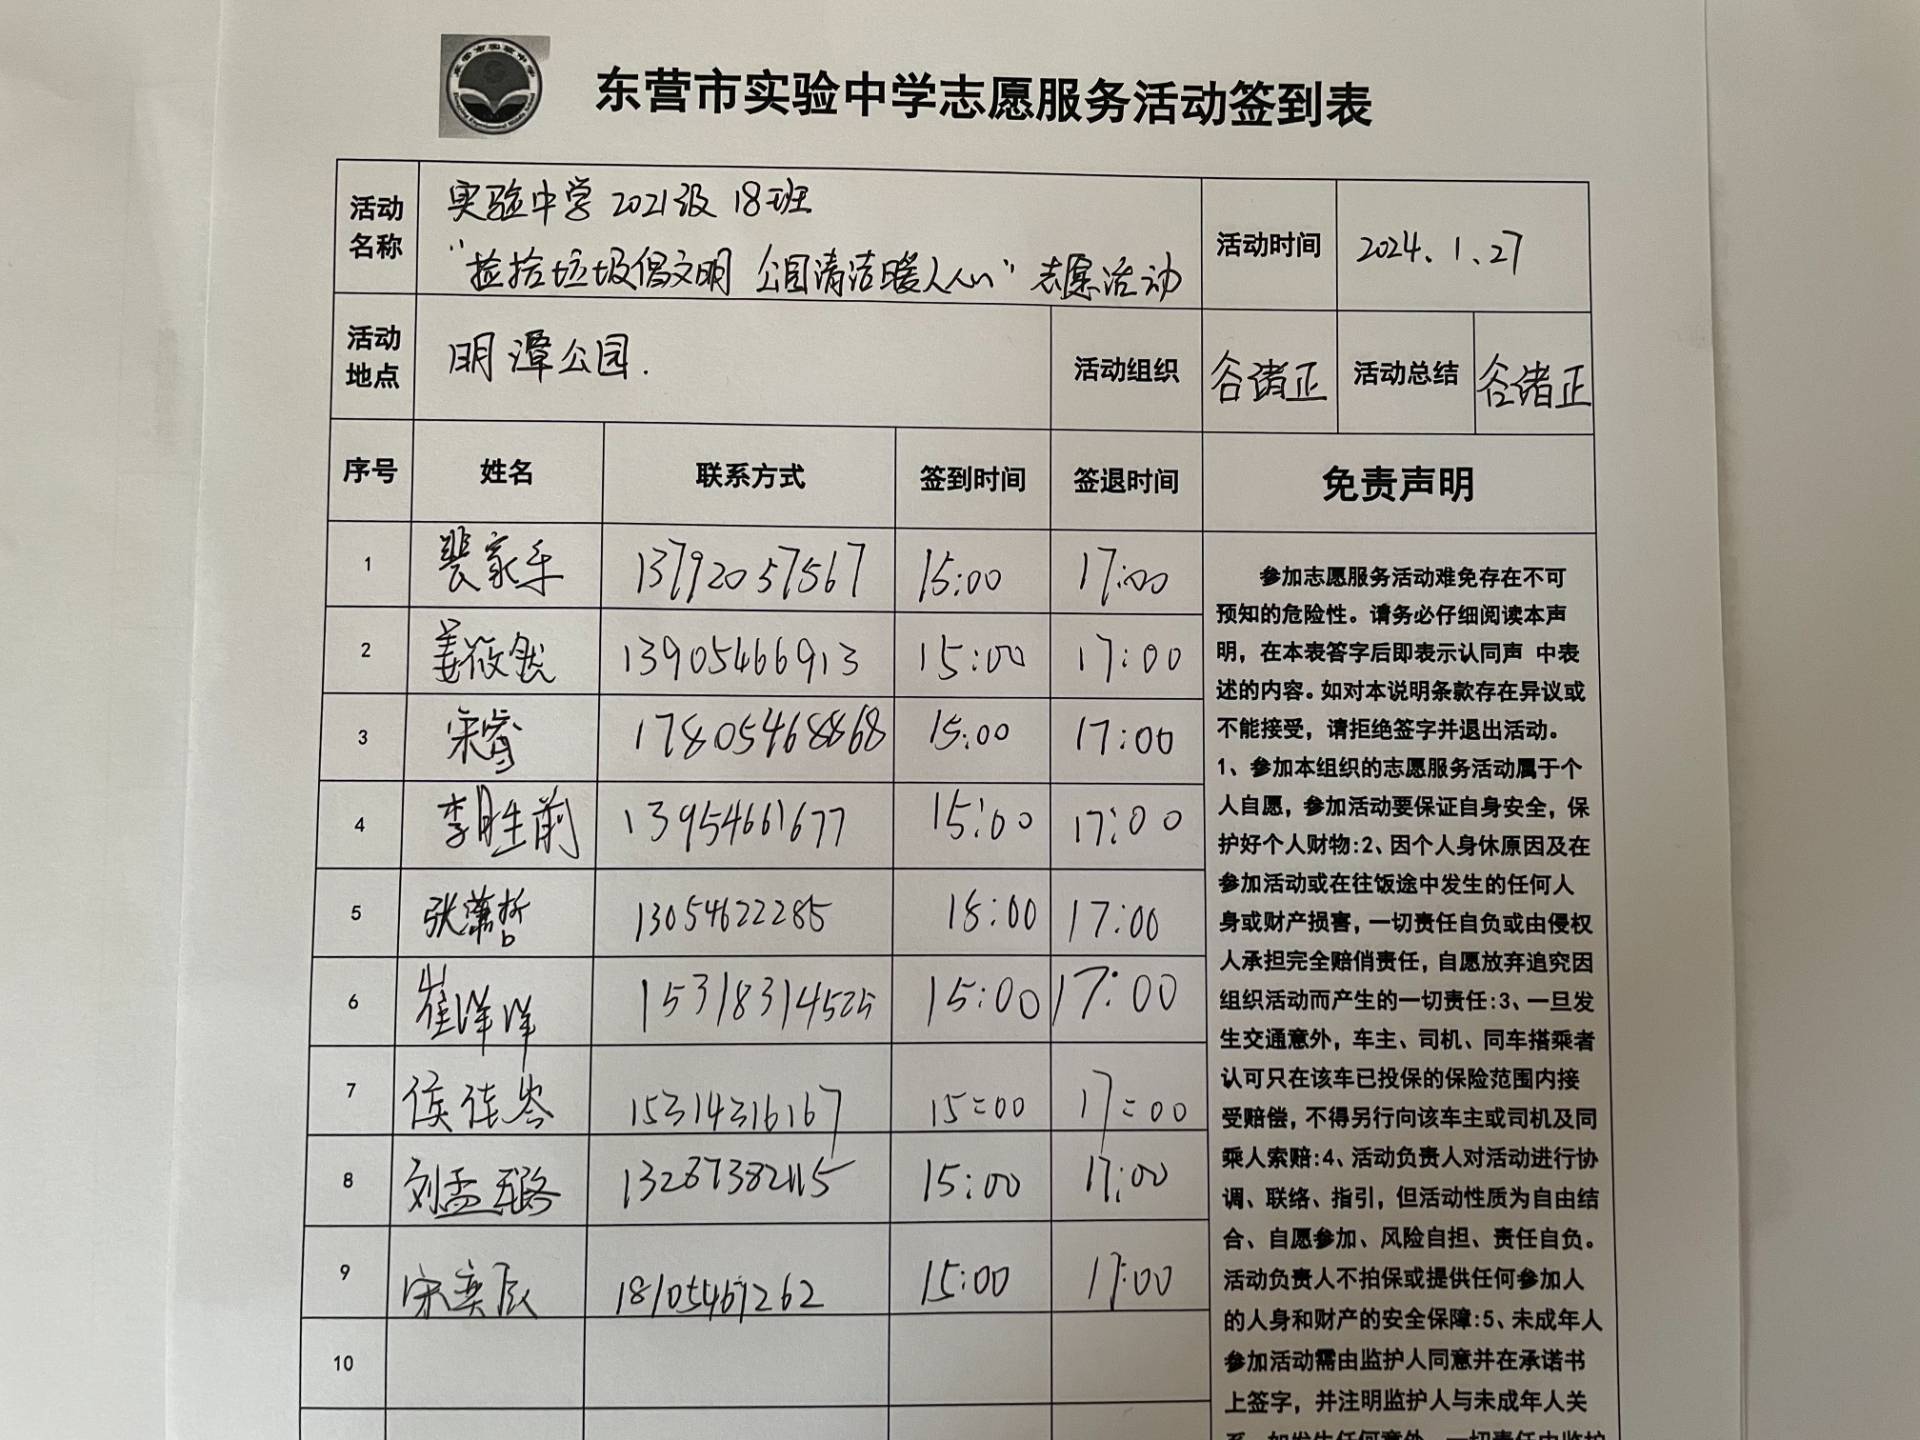 东营市实验中学志愿服务活动签到表
活动名称 实验中学2021级18班
“捡拾垃圾倡文明 公园清洁暖人心”志愿活动
活动时间 2024.1.27
活动地点 明潭公园.
活动组织 谷诸正 活动总结 谷诸正
序号 姓名 联系方式 签到时间 签退时间 免责声明
1 裴家乐 13792057567 15:00 17:00
2 姜筱然 13905466913 15:00 17:00
3 宋睿 17805468868 15:00 17:00
4 李胜前 13954661677 15:00 17:00
5 张潇哲 13054622285 15:00 17:00
6 崔洋洋 15318314525 15:00 17:00
7 侯佳岑 15314316167 15:00 17:00
8 刘孟璐 13287382115 15:00 17:00
9 宋奕辰 18105467262 15:00 17:00
10
参加志愿服务活动难免存在不可
预知的危险性。请务必仔细阅读本声
明，在本表答字后即表示认同声 中表
述的内容。如对本说明条款存在异议或
不能接受，请拒绝签字并退出活动。
1、参加本组织的志愿服务活动属于个
人自愿，参加活动要保证自身安全，保
护好个人财物:2、因个人身休原因及在
参加活动或在往饭途中发生的任何人
身或财产损害，一切责任自负或由侵权
人承担完全赔俏责任，自愿放弃追究因
组织活动而产生的一切责任:3、一旦发
生交通意外，车主、司机、同车搭乘者
认可只在该车已投保的保险范围内接
受赔偿，不得另行向该车主或司机及同
乘人索赔:4、活动负责人对活动进行协
调、联络、指引，但活动性质为自由结
合、自愿参加、风险自担、责任自负。
活动负责人不拍保或提供任何参加人
的人身和财产的安全保障:5、未成年人
参加活动需由监护人同意并在承诺书
上签字，并注明监护人与未成年人关
系，如发生任何意外，一切责任由监护